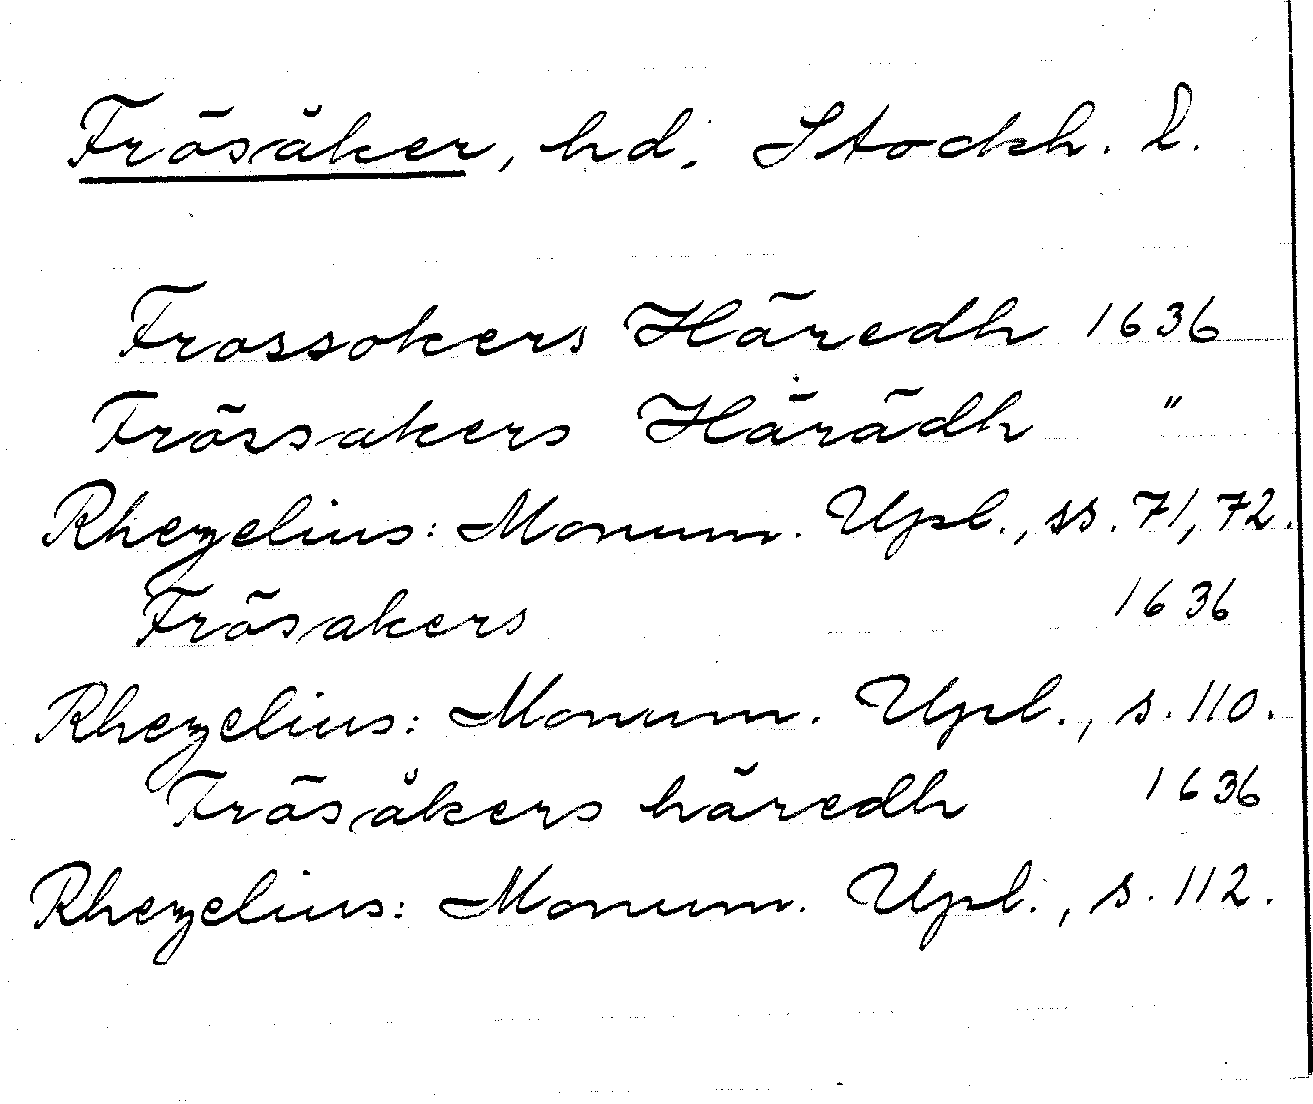 Frösåker, hd. Stockh. l.
Frossokers Häredh 1636
Frössakers Härädh "
Rhezelius: Monum. Upl., ss. 71, 72.
Frösakers 1636
Rhezelius: Monum. Upl., s. 110.
Frösåkers häredh 1636
Rhezelius: Monum. Upl., s. 112.